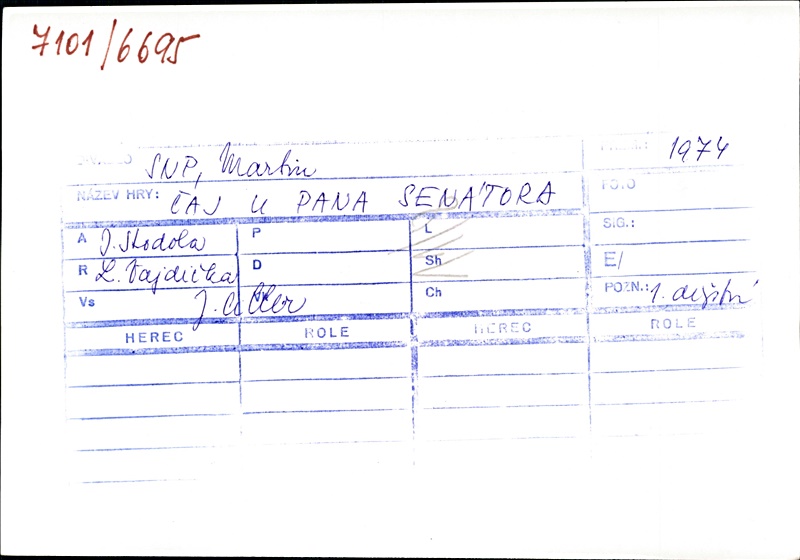 7101/6695
DIVADLO SNP, Martin 1974
NÁZEV HRY: ČAJ U PANA SENÁTORA FOTO
A J. Stodola P L SIG.:
R L. Vajdička D Sh E/
Vs J. Ciller Ch POZN.:
HEREC ROLE HEREC ROLE